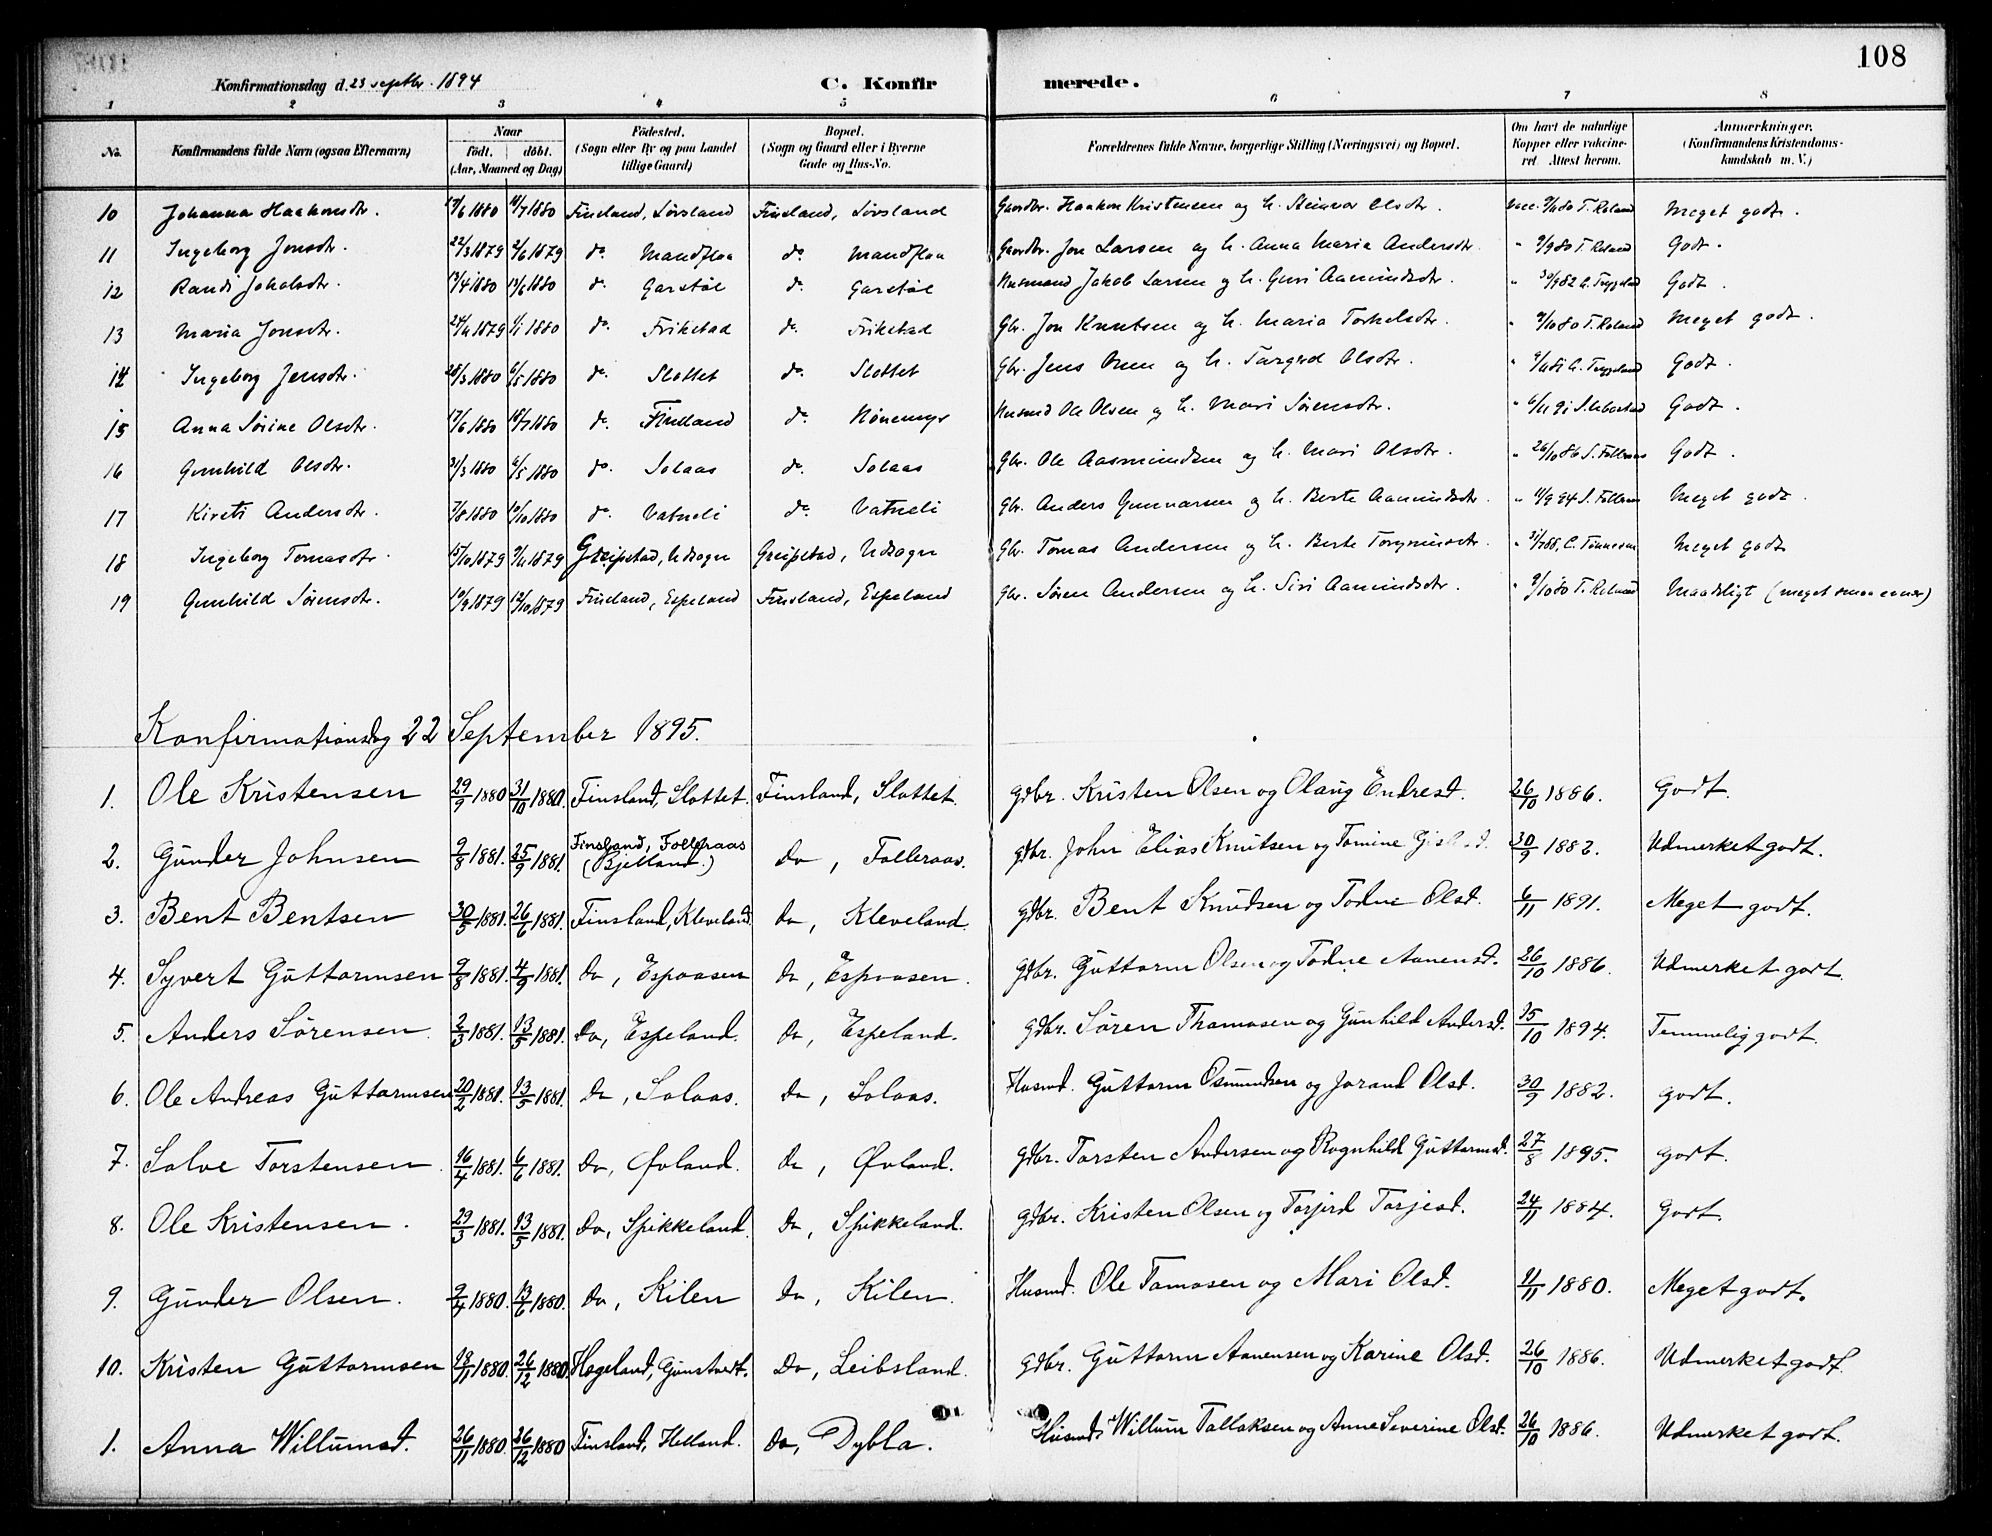 108
Konfirmationsdag d. 23 septbr. 1894
C. Konfir merede.
1 2 3 4 5 6 7 8
No. Konfirmandens fulde Navn (ogsaa Efternavn) Naar født. døbt. (Aar, Maaned og Dag) Fødested. (Sogn eller By og paa Landet tillige Gaard) Bopæl. (Sogn og Gaard eller i Byerne Gade og Hus-No. Forældrenes fulde Navne, borgerlige Stilling (Næringsvei) og Bopæl. Om havt de naturlige Kopper eller vakcineret. Attest herom. Anmærkninger. (Konfirmandens Kristendomskundskab m. V.)
10 Johanna Haakonsdtr. 1880 1880 Finsland, Lövsland Finsland, Lövsland Gaardbr. Haakon Kristensen og h. Steinvor Olsdtr. vacc. T. Roland Meget godt.
11 Ingeborg Jonsdtr. 22/3 1879 2/6 1879 do. Mandflaa do. Mandflaa Gaardbr. Jon Larsen og h. Anna Maria Andersdtr. " 9/9 80 T. Roland Godt.
12 Randi Jakobsdtr. 1880 13/6 1880 do. Garstöl do. Garstöl Husmand Jakob Larsen og h. Guri Aamundsdtr. " 30/9 82 Godt.
13 Maria Jonsdtr. 24/11 1879 1/1 1880 do. Frikstad do. Frikstad Gbr. Jon Knutsen og h. Maria Torkelsdtr. " 9/10 80 T. Roland Meget godt.
14 Ingeborg Jensdtr. 28/3 1880 6/5 1880 do. Slottet do. Slottet Gbr. Jens Osen og h. Targerd Olsdtr. " Godt.
15 Anna Sörine Olsdtr. 17/6 1880 18/7 1880 do. Finsland do. Hönemyr Husmd Ole Olsen og h. Mari Sörensdtr. " 6/11 91 Godt.
16 Gunhild Olsdtr. 31/3 1880 6/5 1880 do. Solaas do. Solaas Gbr. Ole Aasmundsen og h. Mari Olsdtr. " 26/10 86 S. Godt.
17 Kirsti Andersdtr. 7/8 1880 10/10 1880 do. Vatneli do. Vatneli Gbr. Anders Gunnarsen og h. Berte Aamundsdtr. " 11/9 94 S. Meget godt.
18 Ingeborg Tomasdtr. 15/10 1879 9/11 1879 Greipstad, Udsogn Greipstad, Udsogn Gbr. Tomas Andersen og h. Berte " 31/7 88, C. Tönnesen Meget godt
19 Gunhild Sörensdtr. 10/9 1879 12/10 1879 Finsland, Espeland Finsland, Espeland Gbr. Sören Andersen og h. Siri Aamundsdtr. " 9/10 80 T. Roland Maadeligt (meget smaa evner)
Konfirmationsdag 22 September 1895.
1. Ole Kristensen 29/9 1880 31/10 1880. Finsland, Slottet. Finsland, Slottet. gdbr. Kristen Olsen og Olaug Endresd. 26/10 1886. Godt.
2. Gunder Johnsen 9/8 1881. 25/9 1881. Finsland, Folleraas (Bjelland.) Do, Folleraas. gdbr. John Elias Knutsen og Tomine 30/9 1882. Udmerket godt.
3. Bent Bentsen 30/5 1881. 26/6 1881. Finsland, Kleveland Do, Kleveland. gdbr. Bent Knudsen og Todne Olsd. 6/11 1891. Meget godt.
4. Syvert Guttormsen 9/8 1881. 4/9 1881. Do, Espaasen Do, Espaasen. gdbr. Guttorm Olsen og Todne Aanensd. 26/10 1886. Udmerket godt.
5. Anders Sörensen 2/3 1881. 13/5 1881. Do, Espeland. Do, Espeland. gdbr. Sören Thomasen og Gunhild Andersd. 15/10 1894. Temmelig godt.
6. Ole Andreas Guttormsen 20/2 1881. 13/5 1881. Do, Solaas. Do, Solaas. Husmd. Guttorm Osmundsen og Jorand Olsd. 30/9 1882. godt.
7. Salve Torstensen. 16/4 1881. 6/6 1881. Do, Øvland. Do, Øvland. gdbr. Torsten Andersen og Rognhild Guttormsd. 27/8 1895. godt.
8. Ole Kristensen. 29/3 1881. 13/5 1881. Do, Spikkeland. Do, Spikkeland. gdbr. Kristen Olsen og Torjerd Torjesd. 24/11 1884. Godt.
9. Gunder Olsen. 9/4 1880. 13/6 1880. Do, Kilen Do, Kilen. Husmd. Ole Tomasen og Mari Olsd. 11/11 1880. Meget godt.
10. Kristen Guttormsen 19/11 1880. 26/12 1880. Hægeland, Gunstvedt. Do, Leibsland. gdbr. Guttorm Aanensen og Karine Olsd. 26/10 1886. Udmerket godt.
1. Anna Willumsd. 26/11 1880. 26/12 1880 Finsland, Helland. Do, Dybla. Husmd. Willum Tallaksen og Anne Severine Olsd. 26/10 1886. Udmerket godt.